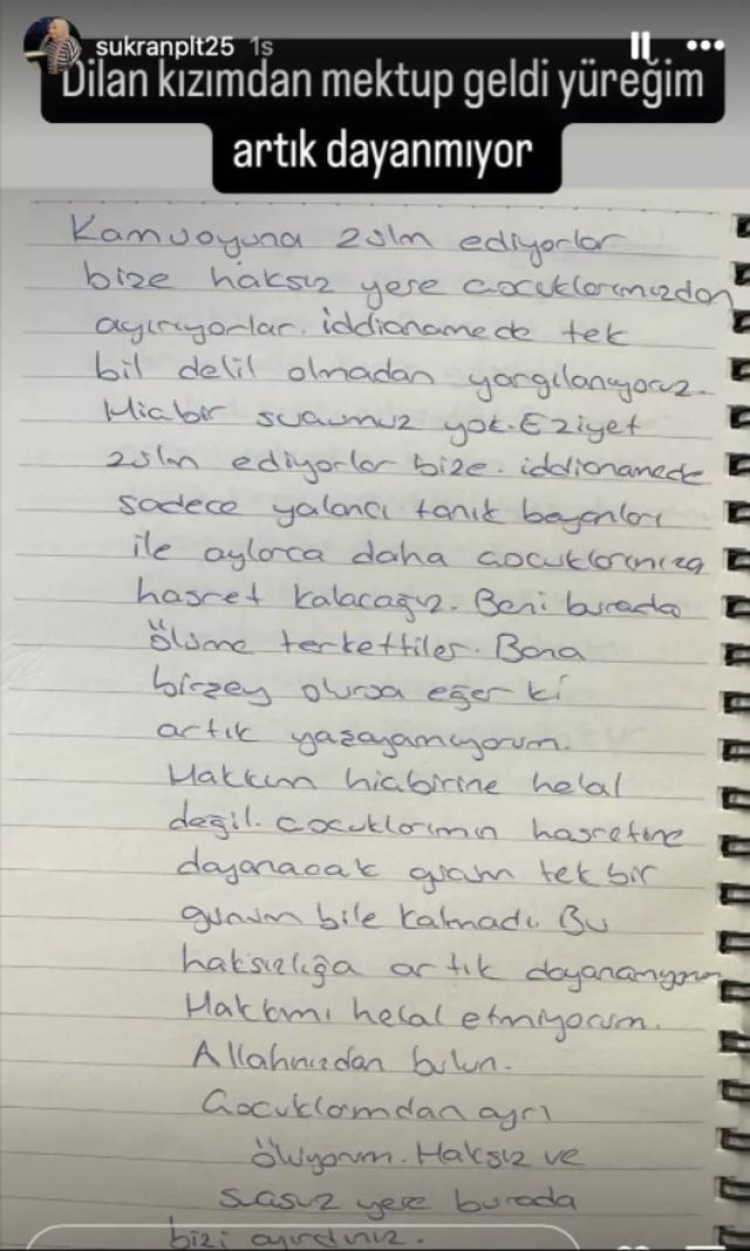 sukranplt25 1s
Dilan kızımdan mektup geldi yüreğim
artık dayanmıyor
Kamuoyuna zulm ediyorlar
bize haksız yere çocuklarımızdan
ayırıyorlar. iddianamede tek
bil delil olmadan yargılanıyoruz.
Hiçbir suçumuz yok. Eziyet
zulm ediyorlar bize. iddianamede
sadece yalancı tanık beyanları
ile aylarca daha çocuklarımıza
hasret kalacağız. Beni burada
ölüme terkettiler. Bana
birşey olursa eğer ki
artık yaşayamıyorum.
Hakkım hiçbirine helal
değil. Çocuklarımın hasretine
dayanacak gücüm tek bir
günüm bile kalmadı. Bu
haksızlığa artık dayanamıyorum
Hakkımı helal etmiyorum.
Allahınızdan bulun.
Çocuklarımdan ayrı
ölüyorum. Haksız ve
suçsuz yere burada
bizi ayırdınız.